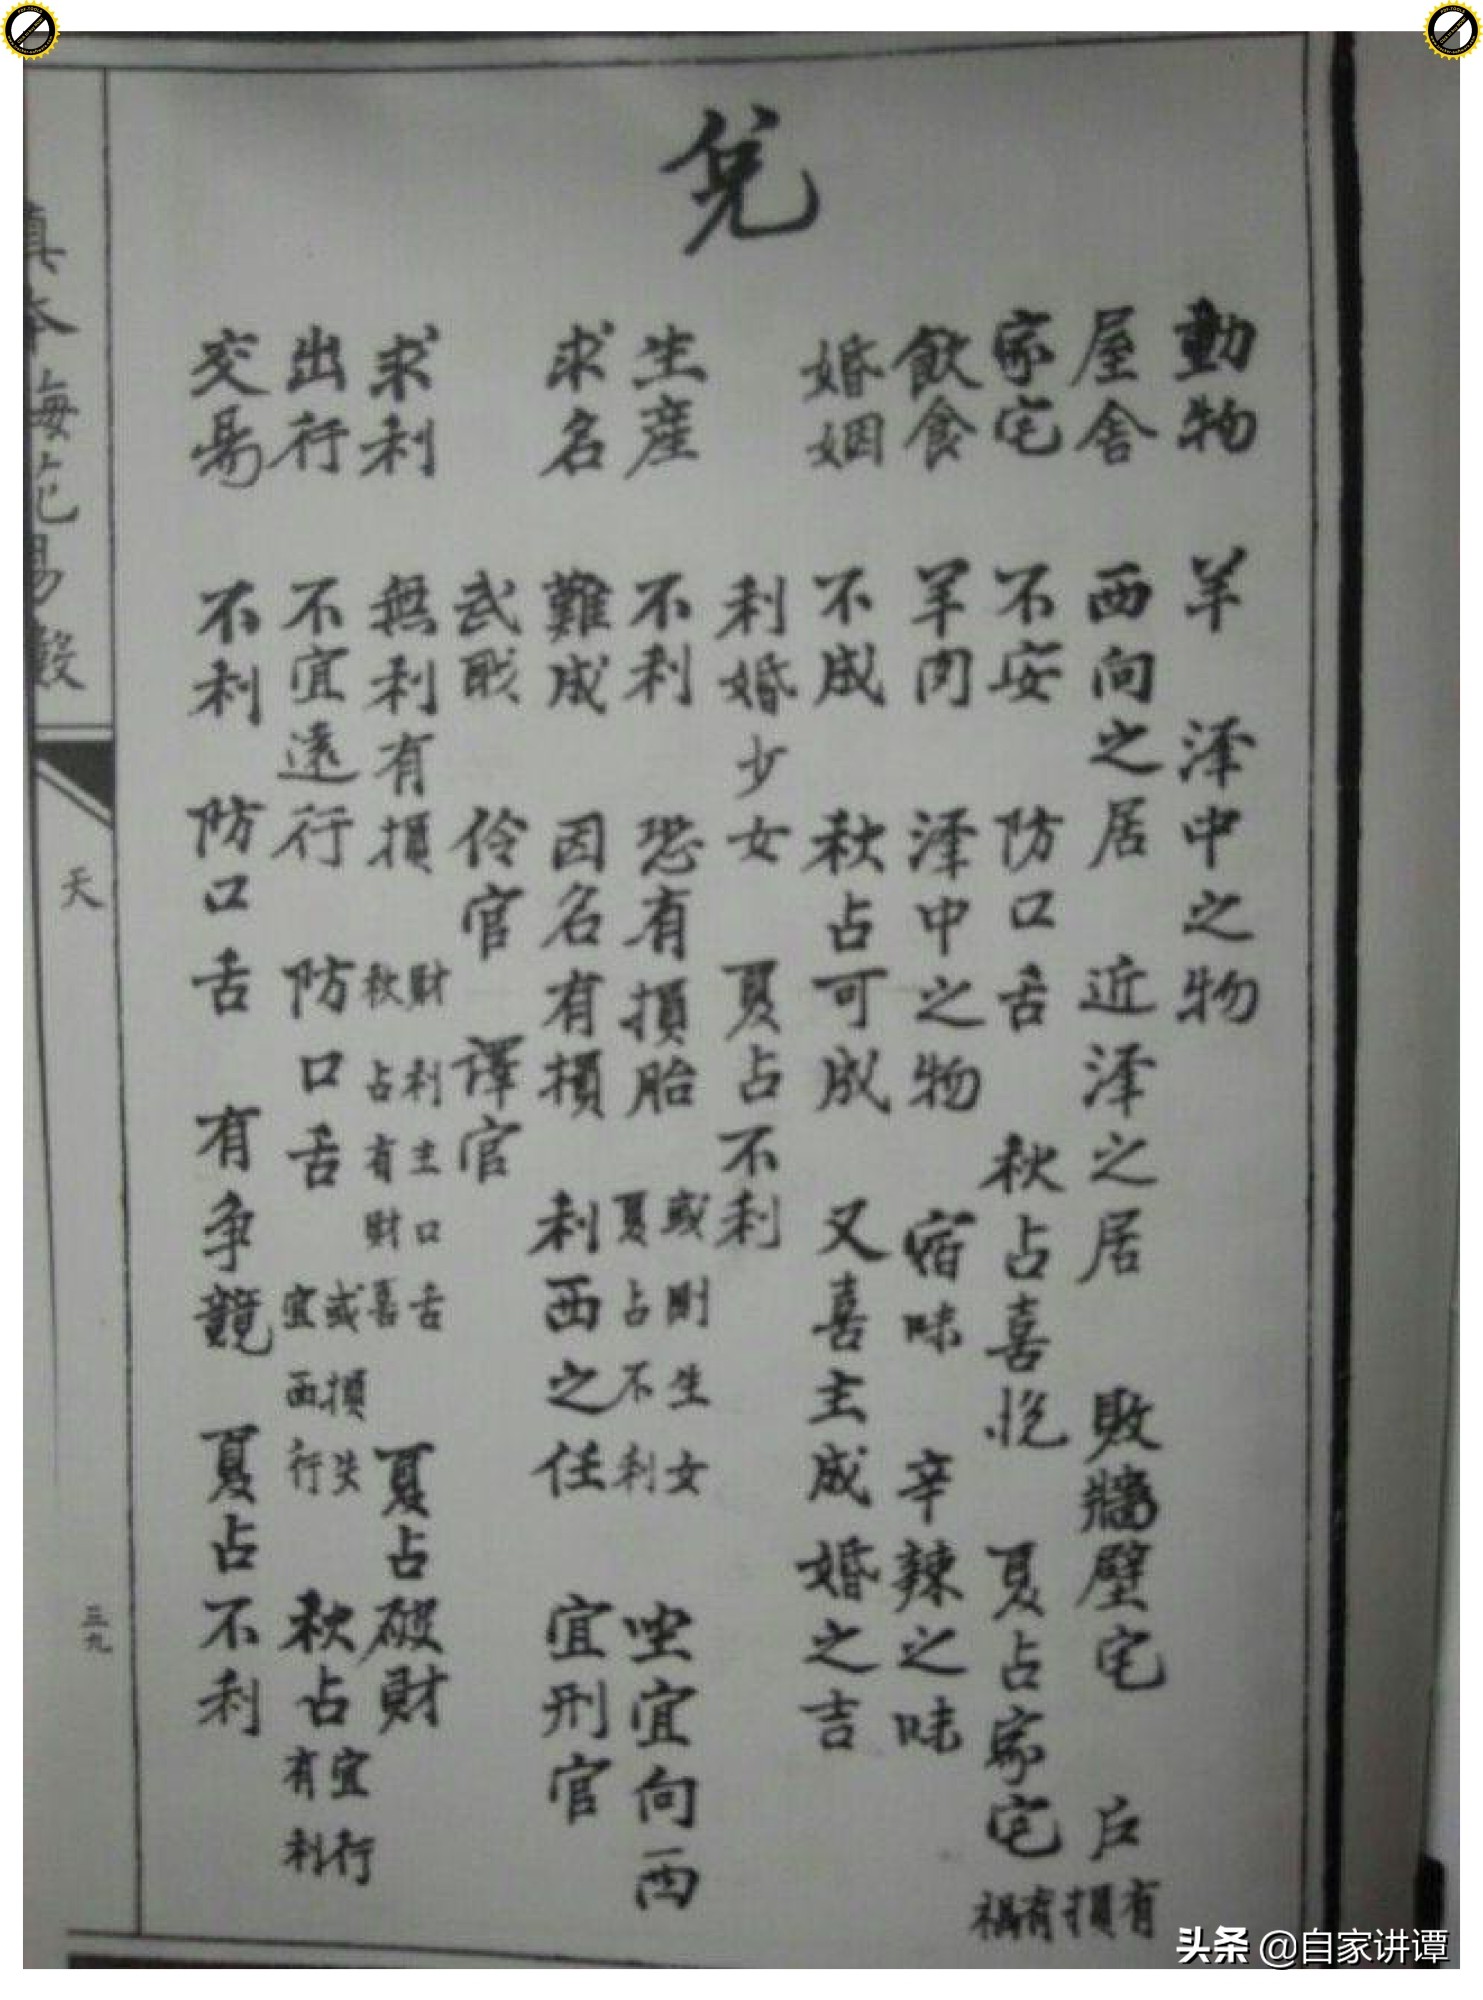 兌
動物 羊 澤中之物
屋舍 西向之居 近澤之居 敗牆壁宅 戶有損
家宅 不安 防口舌 秋占喜悅 夏占家宅有禍
飲食 羊肉 澤中之物 宿味 辛辣之味
婚姻 不成 秋占可成 又喜主成婚之吉
利婚少女 夏占不利
生產 不利 恐有損胎 或則生女 夏占不利 坐宜向西
求名 難成 因名有損 利西之任 宜刑官
武職 伶官 譯官
求利 無利有損 財利主口舌 秋占有財喜 夏占破財
出行 不宜遠行 防口舌 或損失 宜西行 秋占宜行有利
交易 不利 防口舌 有争競 夏占不利
真本梅花易數
天
三九
头条 @自家讲谭